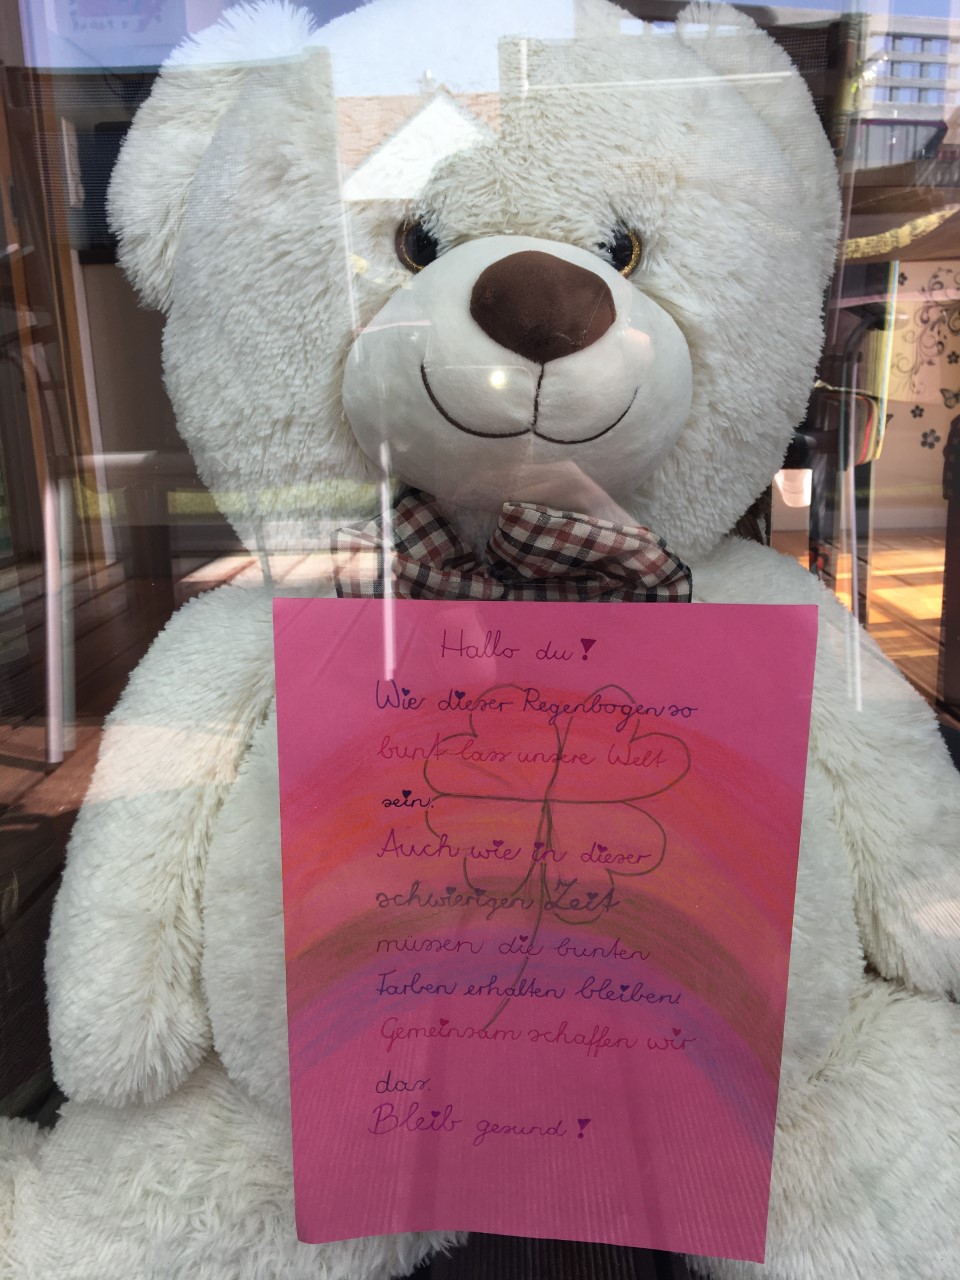 Hallo du!
Wie dieser Regenbogen so
bunt lass unsere Welt
sein.
Auch wie in dieser
schwierigen Zeit
müssen die bunten
Farben erhalten bleiben.
Gemeinsam schaffen wir
das.
Bleib gesund!